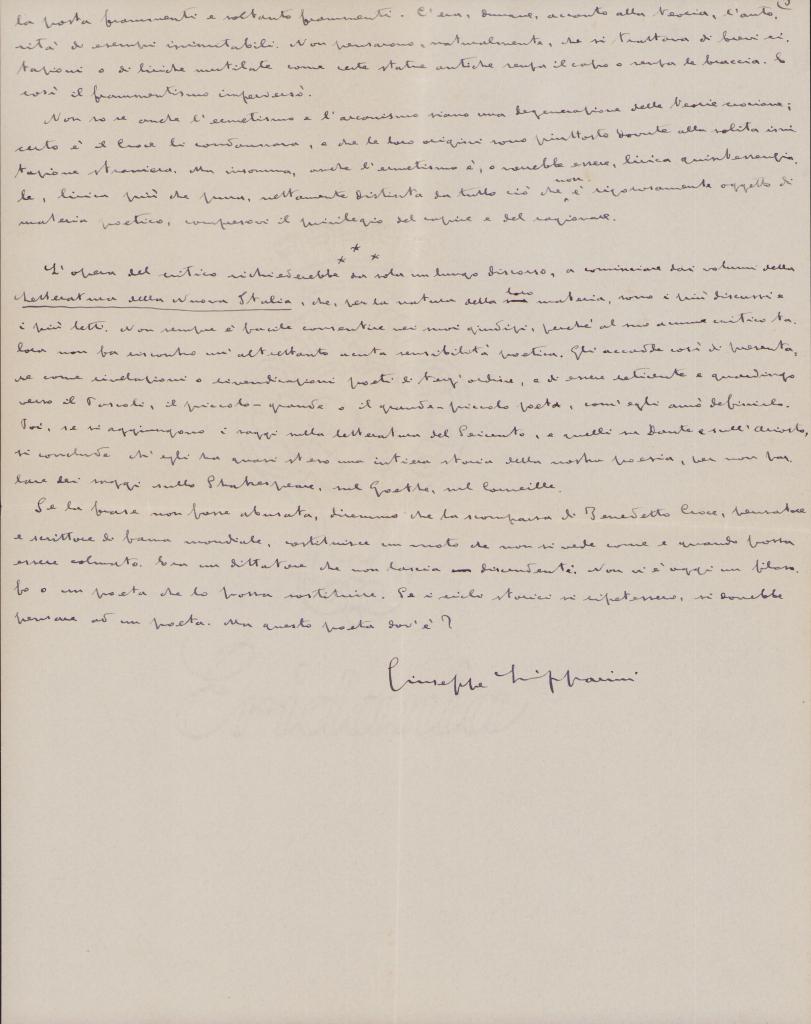 la posta frammenti e soltanto frammenti. C'era, dunque, accanto alla teoria, l'auto,
rità di esempi inimitabili. Non pensarono, naturalmente, che si trattava di brevi ci,
tazioni o di liriche mutilate come certe statue antiche senza il capo o senza le braccia. E
così il frammentismo imperversò.
Non so se anche l'ermetismo e l'arcanismo siano una degenerazione delle teorie crociane;
certo è il Croce li condannava, e che le loro origini sono piuttosto dovute alla solita imi
tazione straniera. Ma insomma, anche l'ermetismo è, o vorrebbe essere, lirica quintessenzia,
le, lirica più che pura, nettamente distinta da tutto ciò che non è rigorosamente oggetto di
materia poetica, compresovi il privilegio del capire e del ragionare.
* * *
L'opera del critico richiederebbe da sola un lungo discorso, a cominciare dai volumi della
Letteratura della Nuova Italia, che, per la natura della loro materia, sono i più discussi e
i più letti. Non sempre è facile consentire nei suoi giudizi, perché al suo acume critico ta,
lora non fa riscontro un'altrettanto acuta sensibilità poetica. Gli accadde così di presenta,
re come rivelazioni o rivendicazioni poeti di terz'ordine, e di essere reticente e guardingo
verso il Pascoli, il piccolo-grande o il grande-piccolo poeta, com'egli amò definirlo.
Poi, se si aggiungono i saggi sulla letteratura del Seicento, e quelli su Dante e sull'Ariosto,
si conclude ch'egli ha quasi steso una intiera storia della nostra poesia, per non par,
lare dei saggi sullo Shakespeare, sul Goethe, sul Corneille.
Se la frase non fosse abusata, diremmo che la scomparsa di Benedetto Croce, pensatore
e scrittore di fama mondiale, costituisce un vuoto che non si vede come e quando possa
essere colmato. Era un dittatore che non lascia discendenti. Non vi è oggi un filoso,
fo o un poeta che lo possa sostituire. Se i cicli storici si ripetessero, si dovrebbe
pensare ad un poeta. Ma questo poeta dov'è?
Giuseppe Lipparini